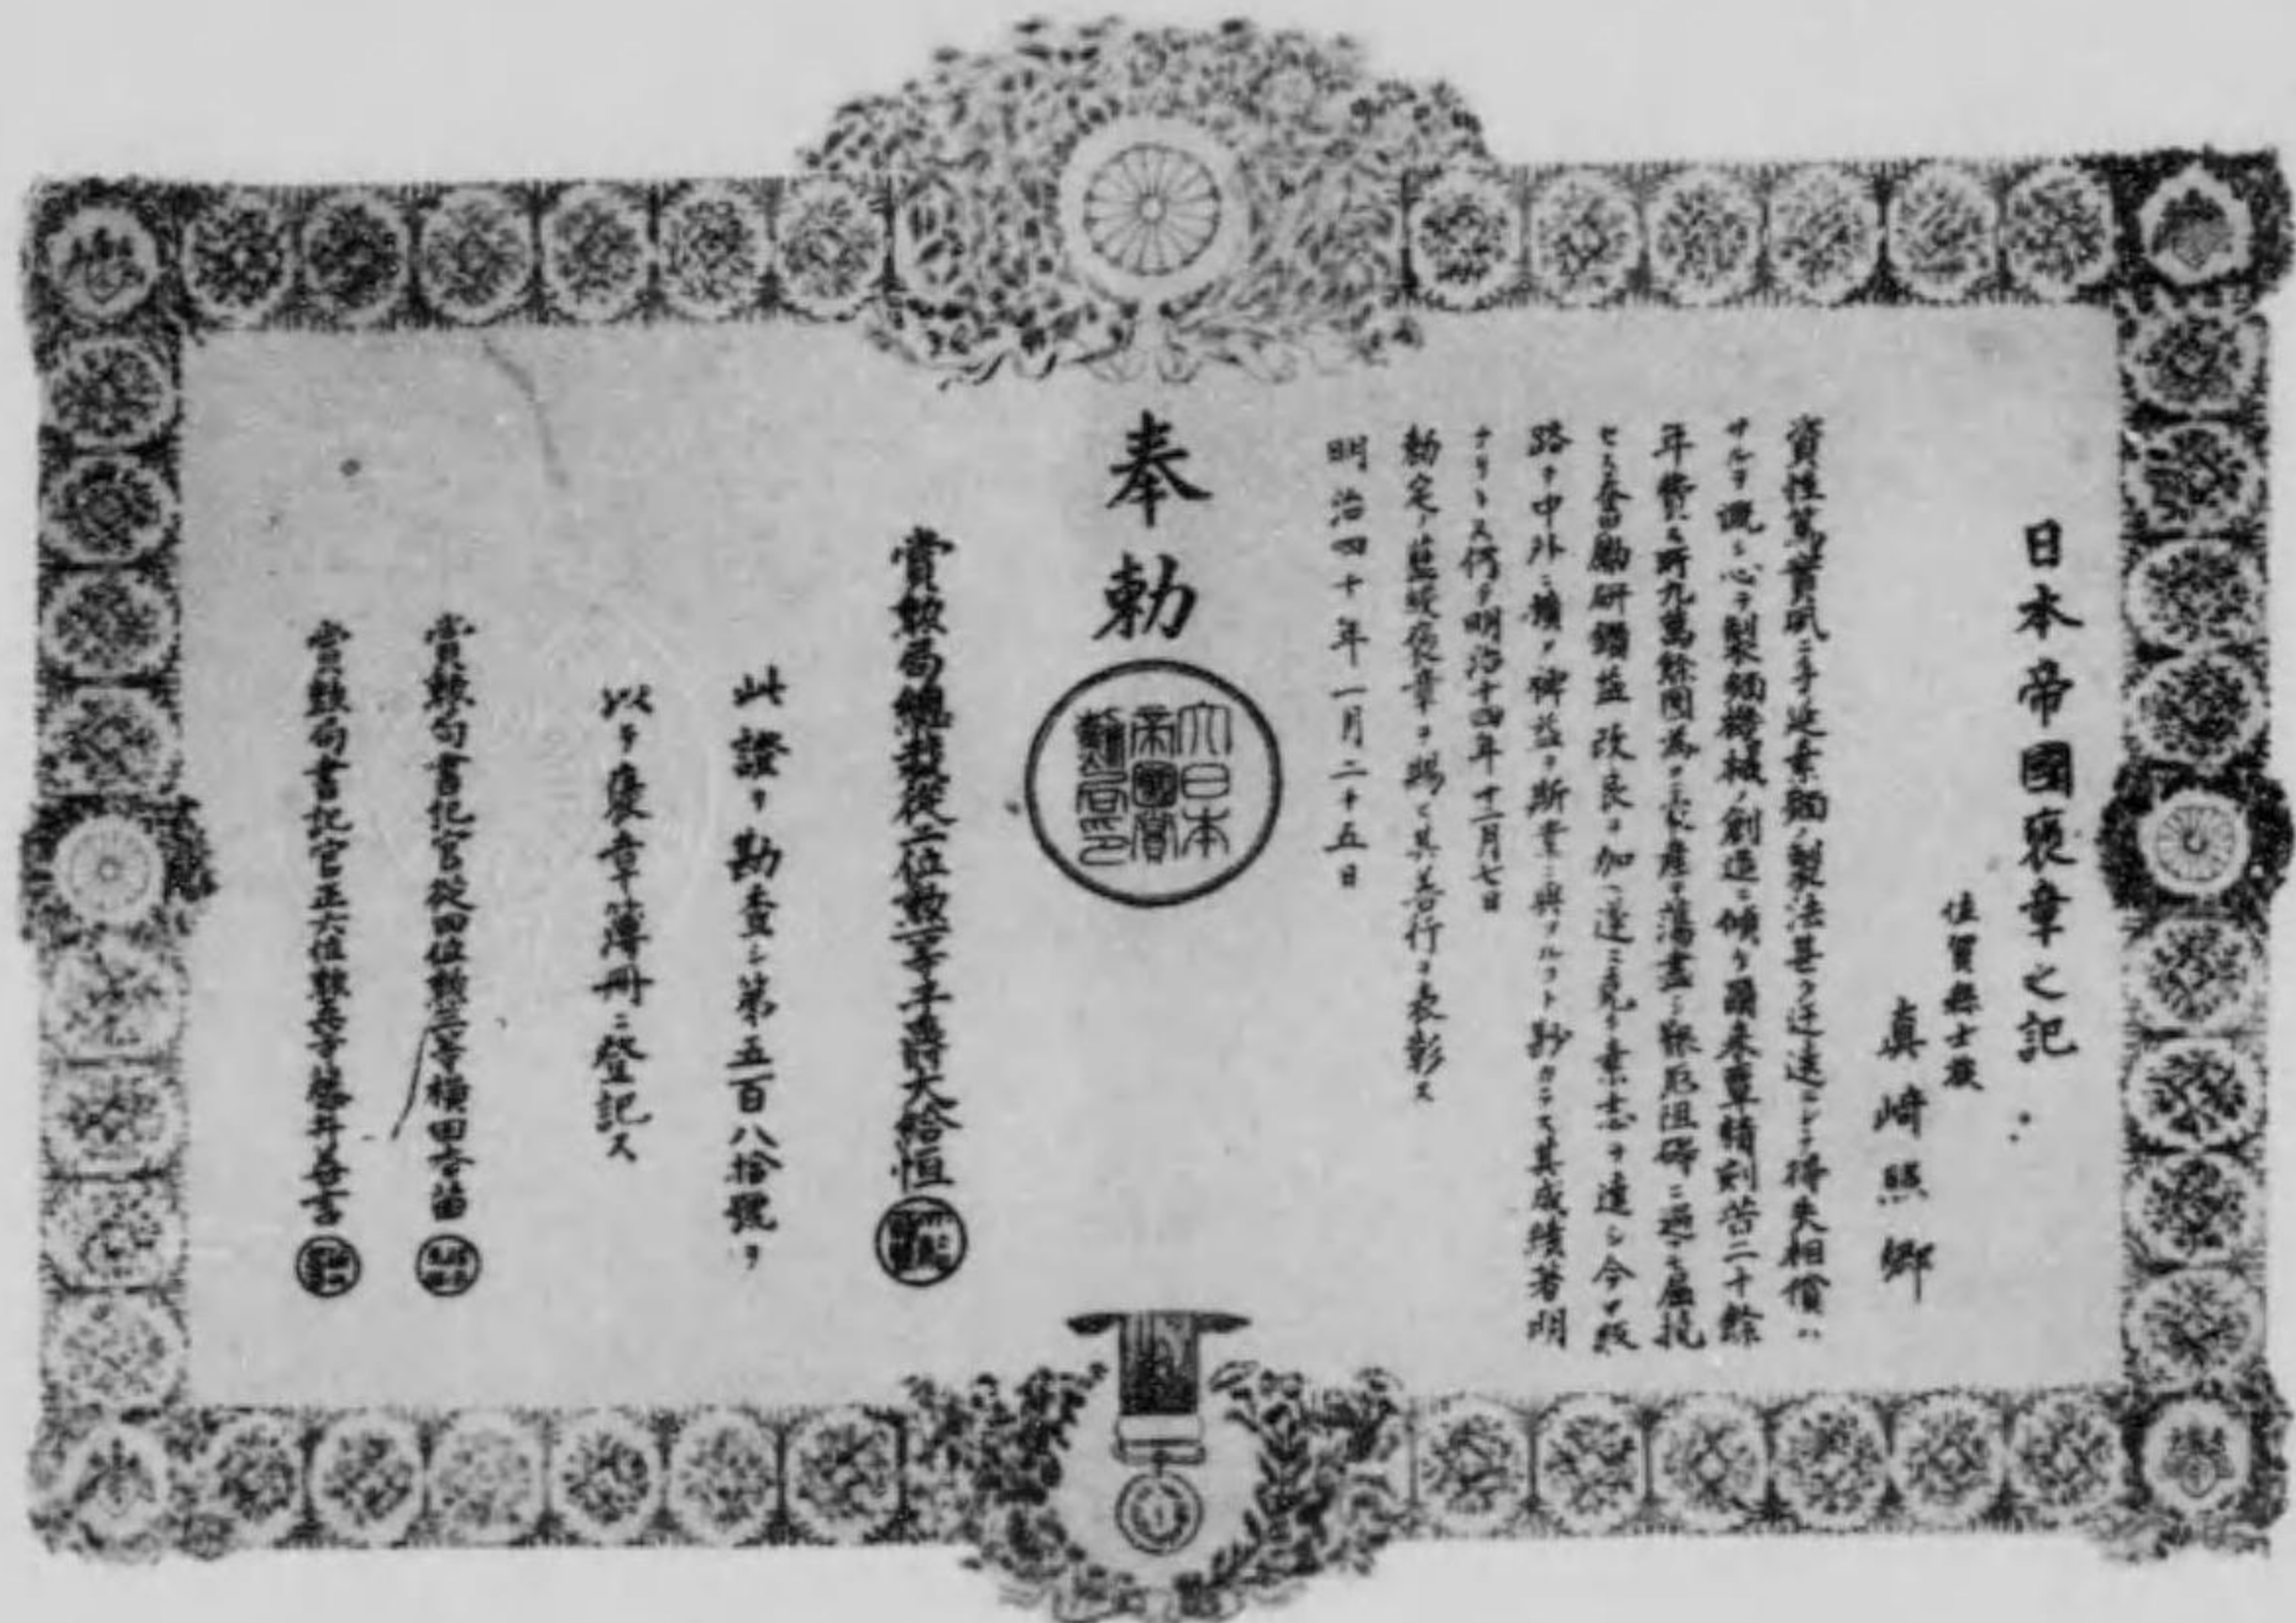 日本帝國褒章之記
佐賀縣士族
真崎照郷
資性篤實夙ニ手延素麺ノ製法甚タ迂遠ニシテ得失相償ハ
サルヲ慨シ心ヲ製麺機械ノ創造ニ傾ケ爾来覃精刻苦二十餘
年費ス所九萬餘圓為ニ家産ヲ蕩盡シ艱厄阻礙ニ遇フモ屈撓
セス奮勵研鑽益改良ヲ加ヘ遂ニ克ク素志ヲ達シ今ヤ販
路ヲ中外ニ擴メ裨益ヲ斯業ニ與フルコト尠カラス其成績著明
ナリトス仍テ明治十四年十二月七日
勅定ノ藍綬褒章ヲ賜ヒ其善行ヲ表彰ス
明治四十年一月二十五日
奉勅
大日本
帝國賞
勲局印
賞勲局總裁從二位勲一等子爵大給恒
此證ヲ勘査シ第五百八拾號ヲ
以テ褒章簿册ニ登記ス
賞勲局書記官從四位勲三等横田香苗
賞勲局書記官正六位勲五等藤井善言